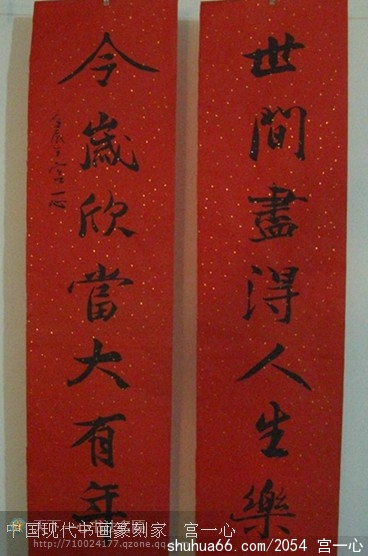 世間盡得人生樂
令歲欣當大有年
宮一心
中国现代书画篆刻家 宫一心
http://710024177.qzone.qq.com
shuhua66.com/2054 宫一心